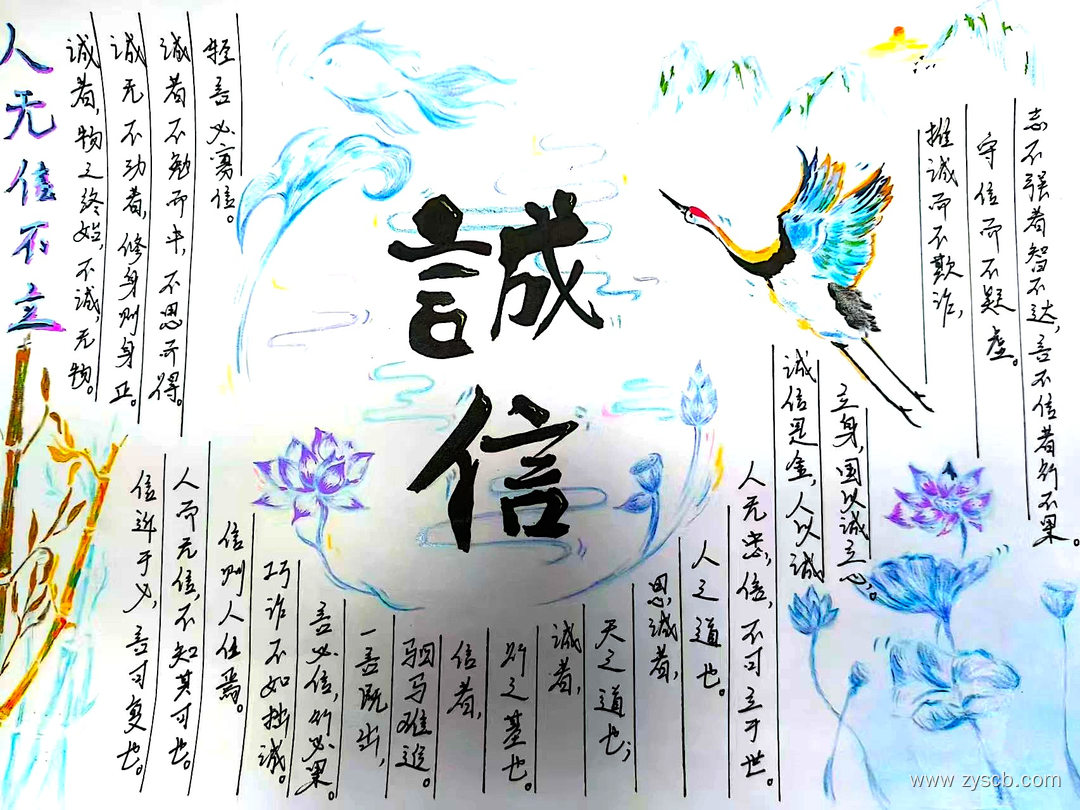 誠信
人无信不立
诚者,物之终始,不诚无物。
诚无不动者,修身则身正。
诚者不勉而中,不思而得。
轻言必寡信。
信近于义,言可复也。
人而无信,不知其可也。
信则人任焉。
巧诈不如拙诚。
言必信,行必果。
一言既出,
驷马难追。
信者,
行之基也。
诚者,
天之道也;
思诚者,
人之道也。
人无忠信,不可立于世。
诚信是金,人以诚
立身,国以诚立心。
推诚而不欺诈,
守信而不疑虚。
志不强者智不达,言不信者行不果。
www.zyscb.com